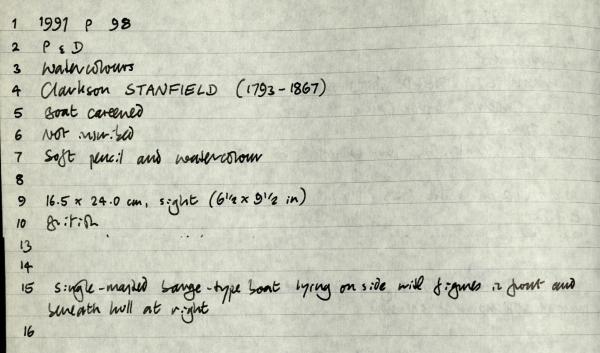 1 1991 P 98
2 P & D
3 Watercolours
4 Clarkson STANFIELD (1793-1867)
5 Boat careened
6 Not inscribed
7 Soft pencil and watercolour
8
9 16.5 x 24.0 cm, sight (6 1/2 x 9 1/2 in)
10 British
13
14
15 Single-masted barge-type boat lying on side with figures in front and
beneath hull at right
16